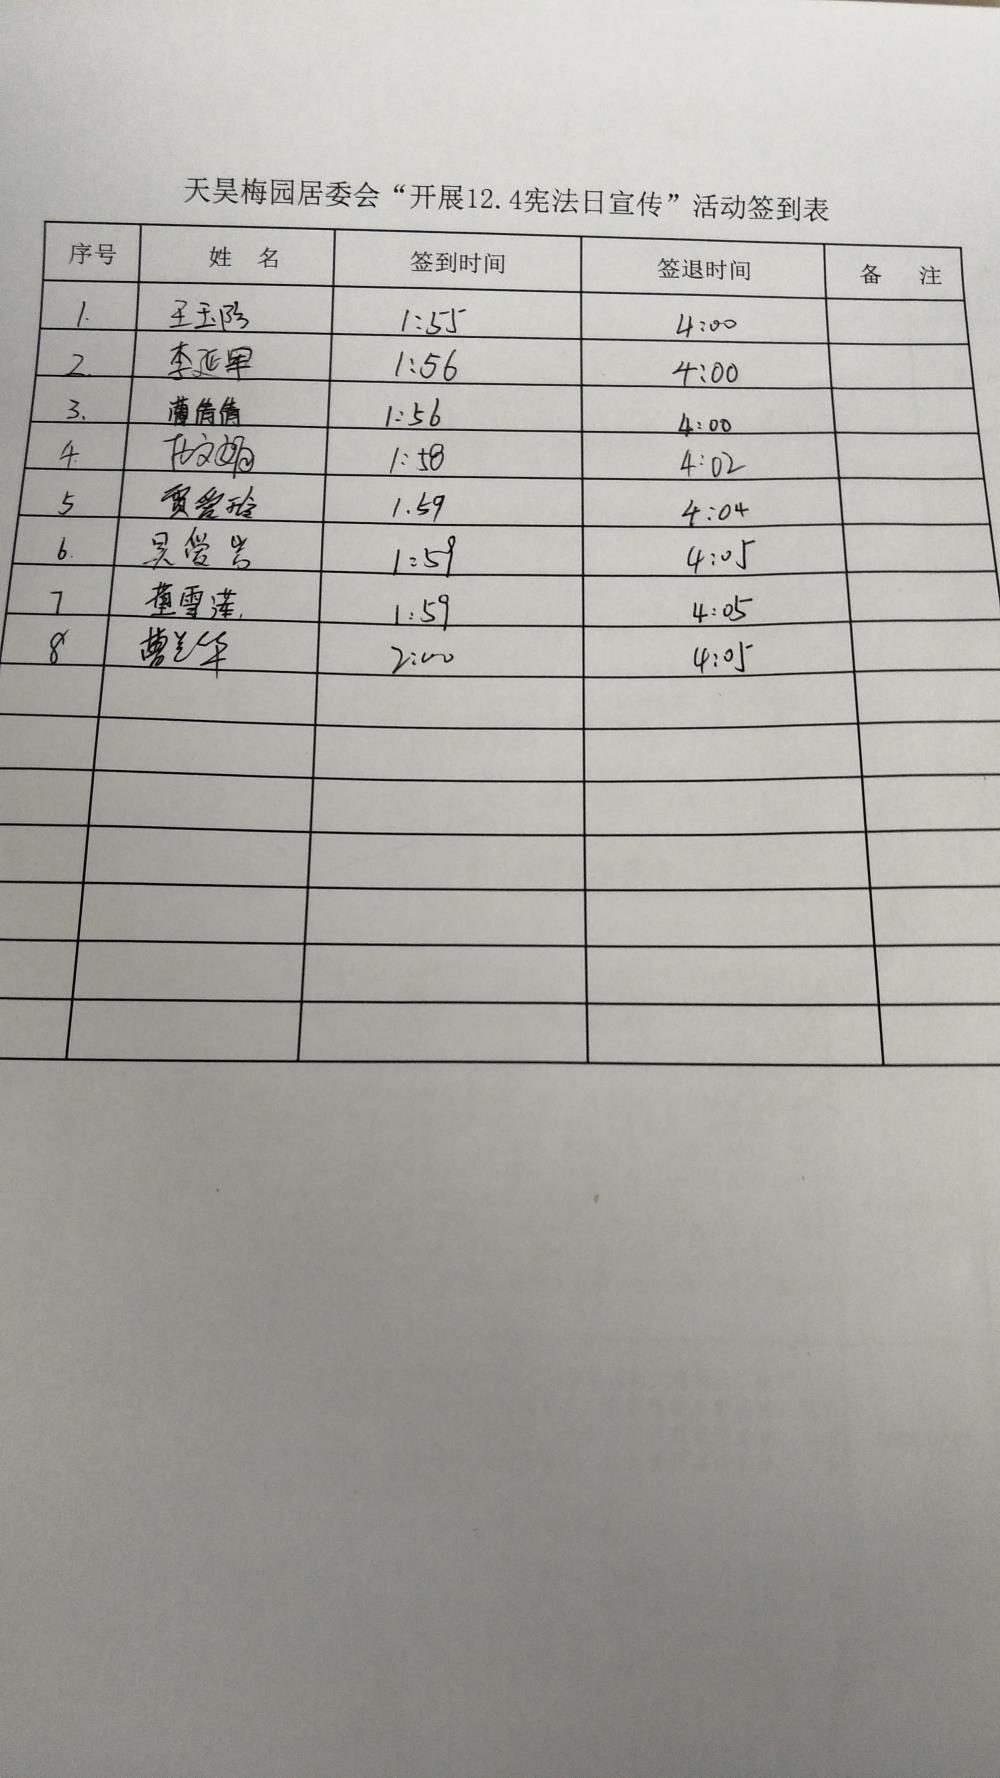 天昊梅园居委会“开展12.4宪法日宣传”活动签到表
序号 姓 名 签到时间 签退时间 备 注
1. 王玉珍 1:55 4:00
2. 李延军 1:56 4:00
3. 曹倩倩 1:56 4:00
4. 杜文娟 1:58 4:02
5 贾爱玲 1.59 4:04
6. 吴爱 1:59 4:05
7 董雪莲. 1:59 4:05
8 曹兰华 2:00 4:05